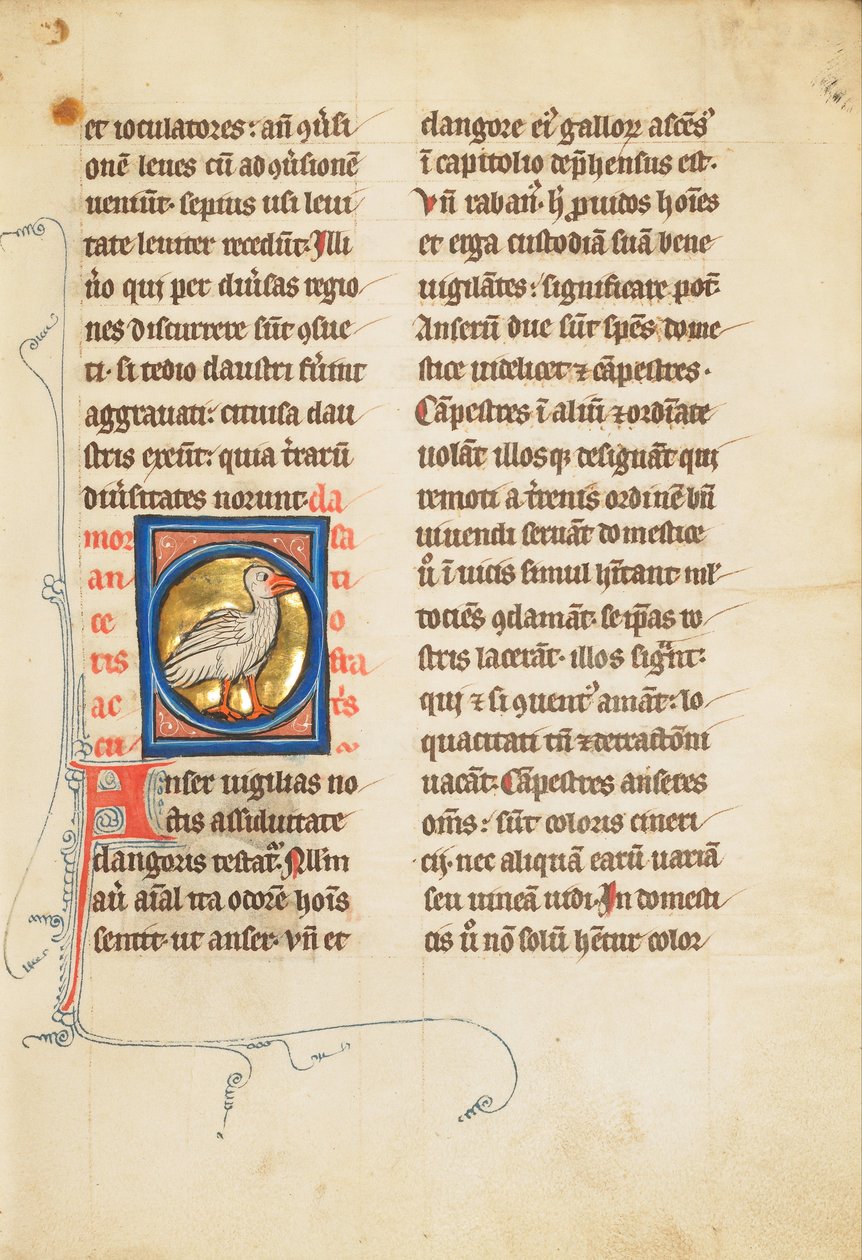 et ioculatores: an̄ ꝯúsi
onē leues cū ad ꝯúsionē
ueniūt· sepius usi leui
tate leuiter recedūt· Illi
ṽo qui per diúsas regio
nes discurrere sūt ꝯsue
ti· si tedio claustri fúint
aggrauati: cituisa clau
stris exeūt: quia t̓rarū
diúsitates norunt· da
mor sa
an ti
ce o
ris stra
ac t̓s
cu
Anser uigilias no
ctis assiduitate
clangoris testat᷑· Nllm
aū aīal ita odorē hoīs
sentit· ut anser· vn̄ et
clangore ei᷒ galloꝝ ascēs᷒
ī capitolio dep̄hensus est·
Vn̄ raban᷒· h̄ ꝓuidos hoīes
et erga custodiā suā bene
uigilātes: significare pot̄·
Anserū due sūt spēs dome
stice uidelicet ⁊ cāpestres·
Cāpestres ī altū ⁊ ordīate
uolāt illosqꝫ designāt qui
remoti a t̓renis ordinē bn̄
uiuendi seruāt domestice
uͦ ī uicis simul hītant ml̓
tociēs ꝯclamāt· se ip̄as ro
stris lacerāt· illos sigͣnt:
qui ⁊ si ꝯuent᷒ amāt: lo
quacitati tn̄ ⁊ detractōni
uacāt· Cāpestres anseres
om̄s: sūt coloris cineri
cij· nec aliquā earū uariā
seu uineā uidi· In domesti
cis uͦ nō solū hētur color